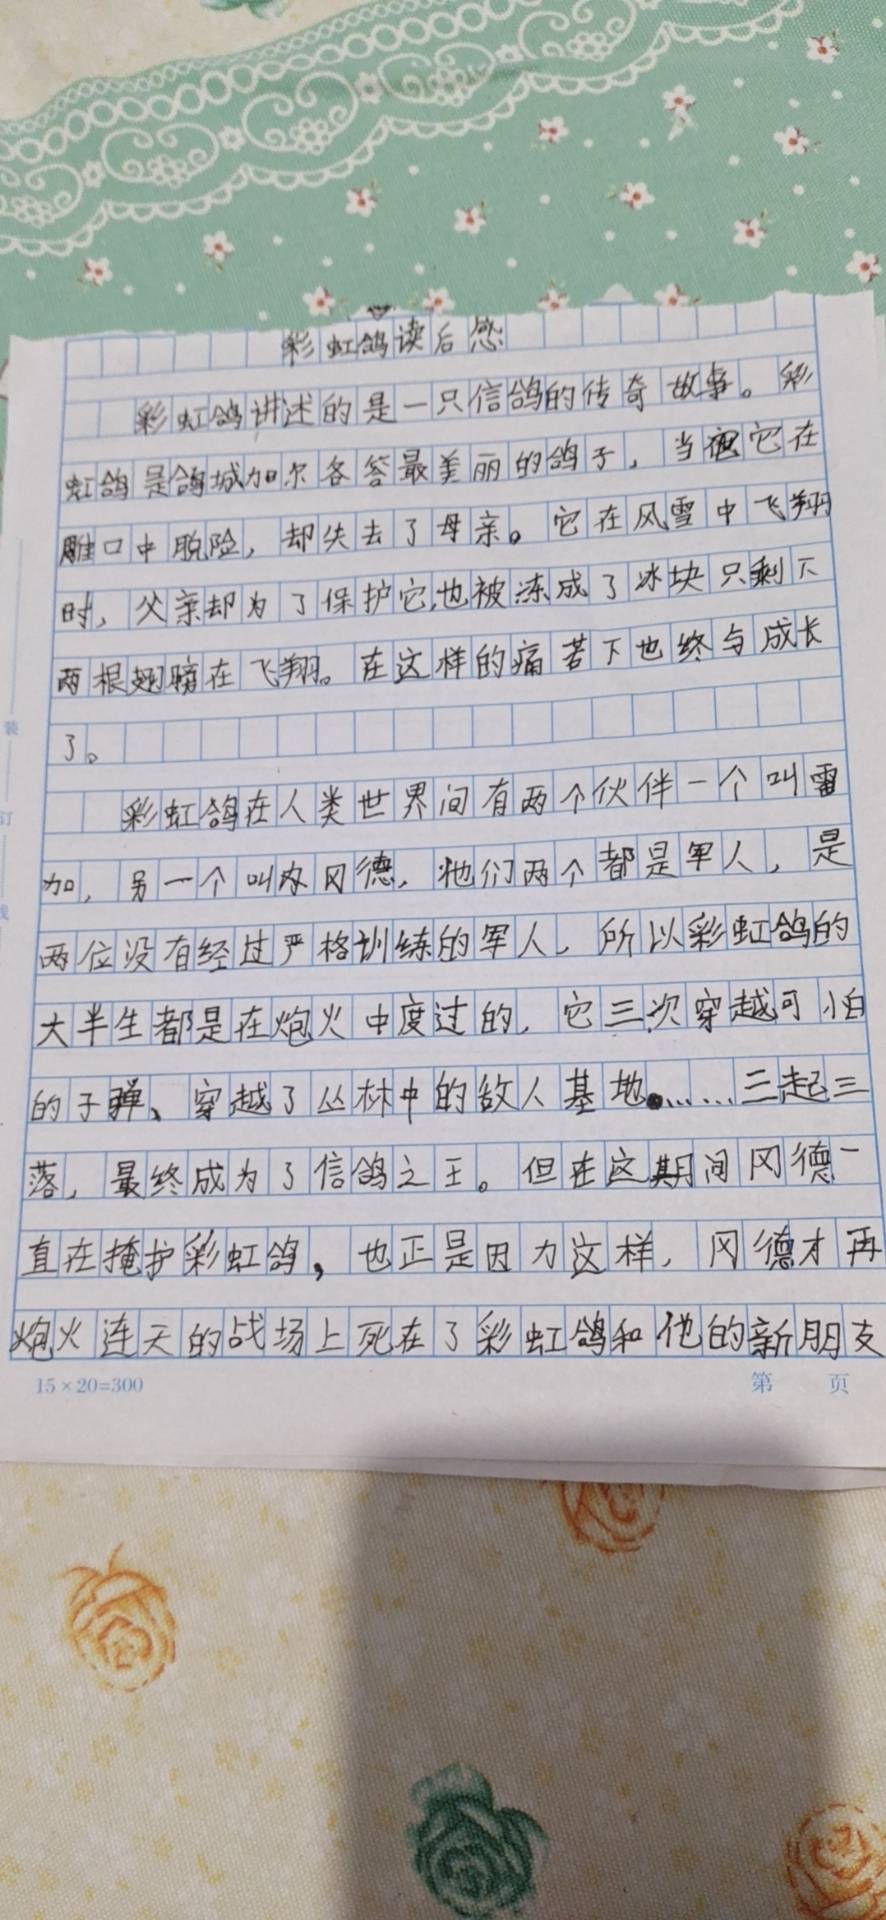 彩虹鸽读后感
彩虹鸽讲述的是一只信鸽的传奇故事。彩
虹鸽是鸽城加尔各答最美丽的鸽子，当它在
雕口中脱险，却失去了母亲。它在风雪中飞翔
时，父亲却为了保护它，也被冻成了冰块只剩下
两根翅膀在飞翔。在这样的痛苦下也终与成长
了。
彩虹鸽在人类世界间有两个伙伴一个叫雷
加，另一个叫冈德，他们两个都是军人，是
两位没有经过严格训练的军人，所以彩虹鸽的
大半生都是在炮火中度过的，它三次穿越可怕
的子弹、穿越了丛林中的敌人基地……三起三
落，最终成为了信鸽之王。但在这期间冈德一
直在掩护彩虹鸽，也正是因力这样，冈德才再
炮火连天的战场上死在了彩虹鸽和他的新朋支
15×20=300
第 页
装
订
线